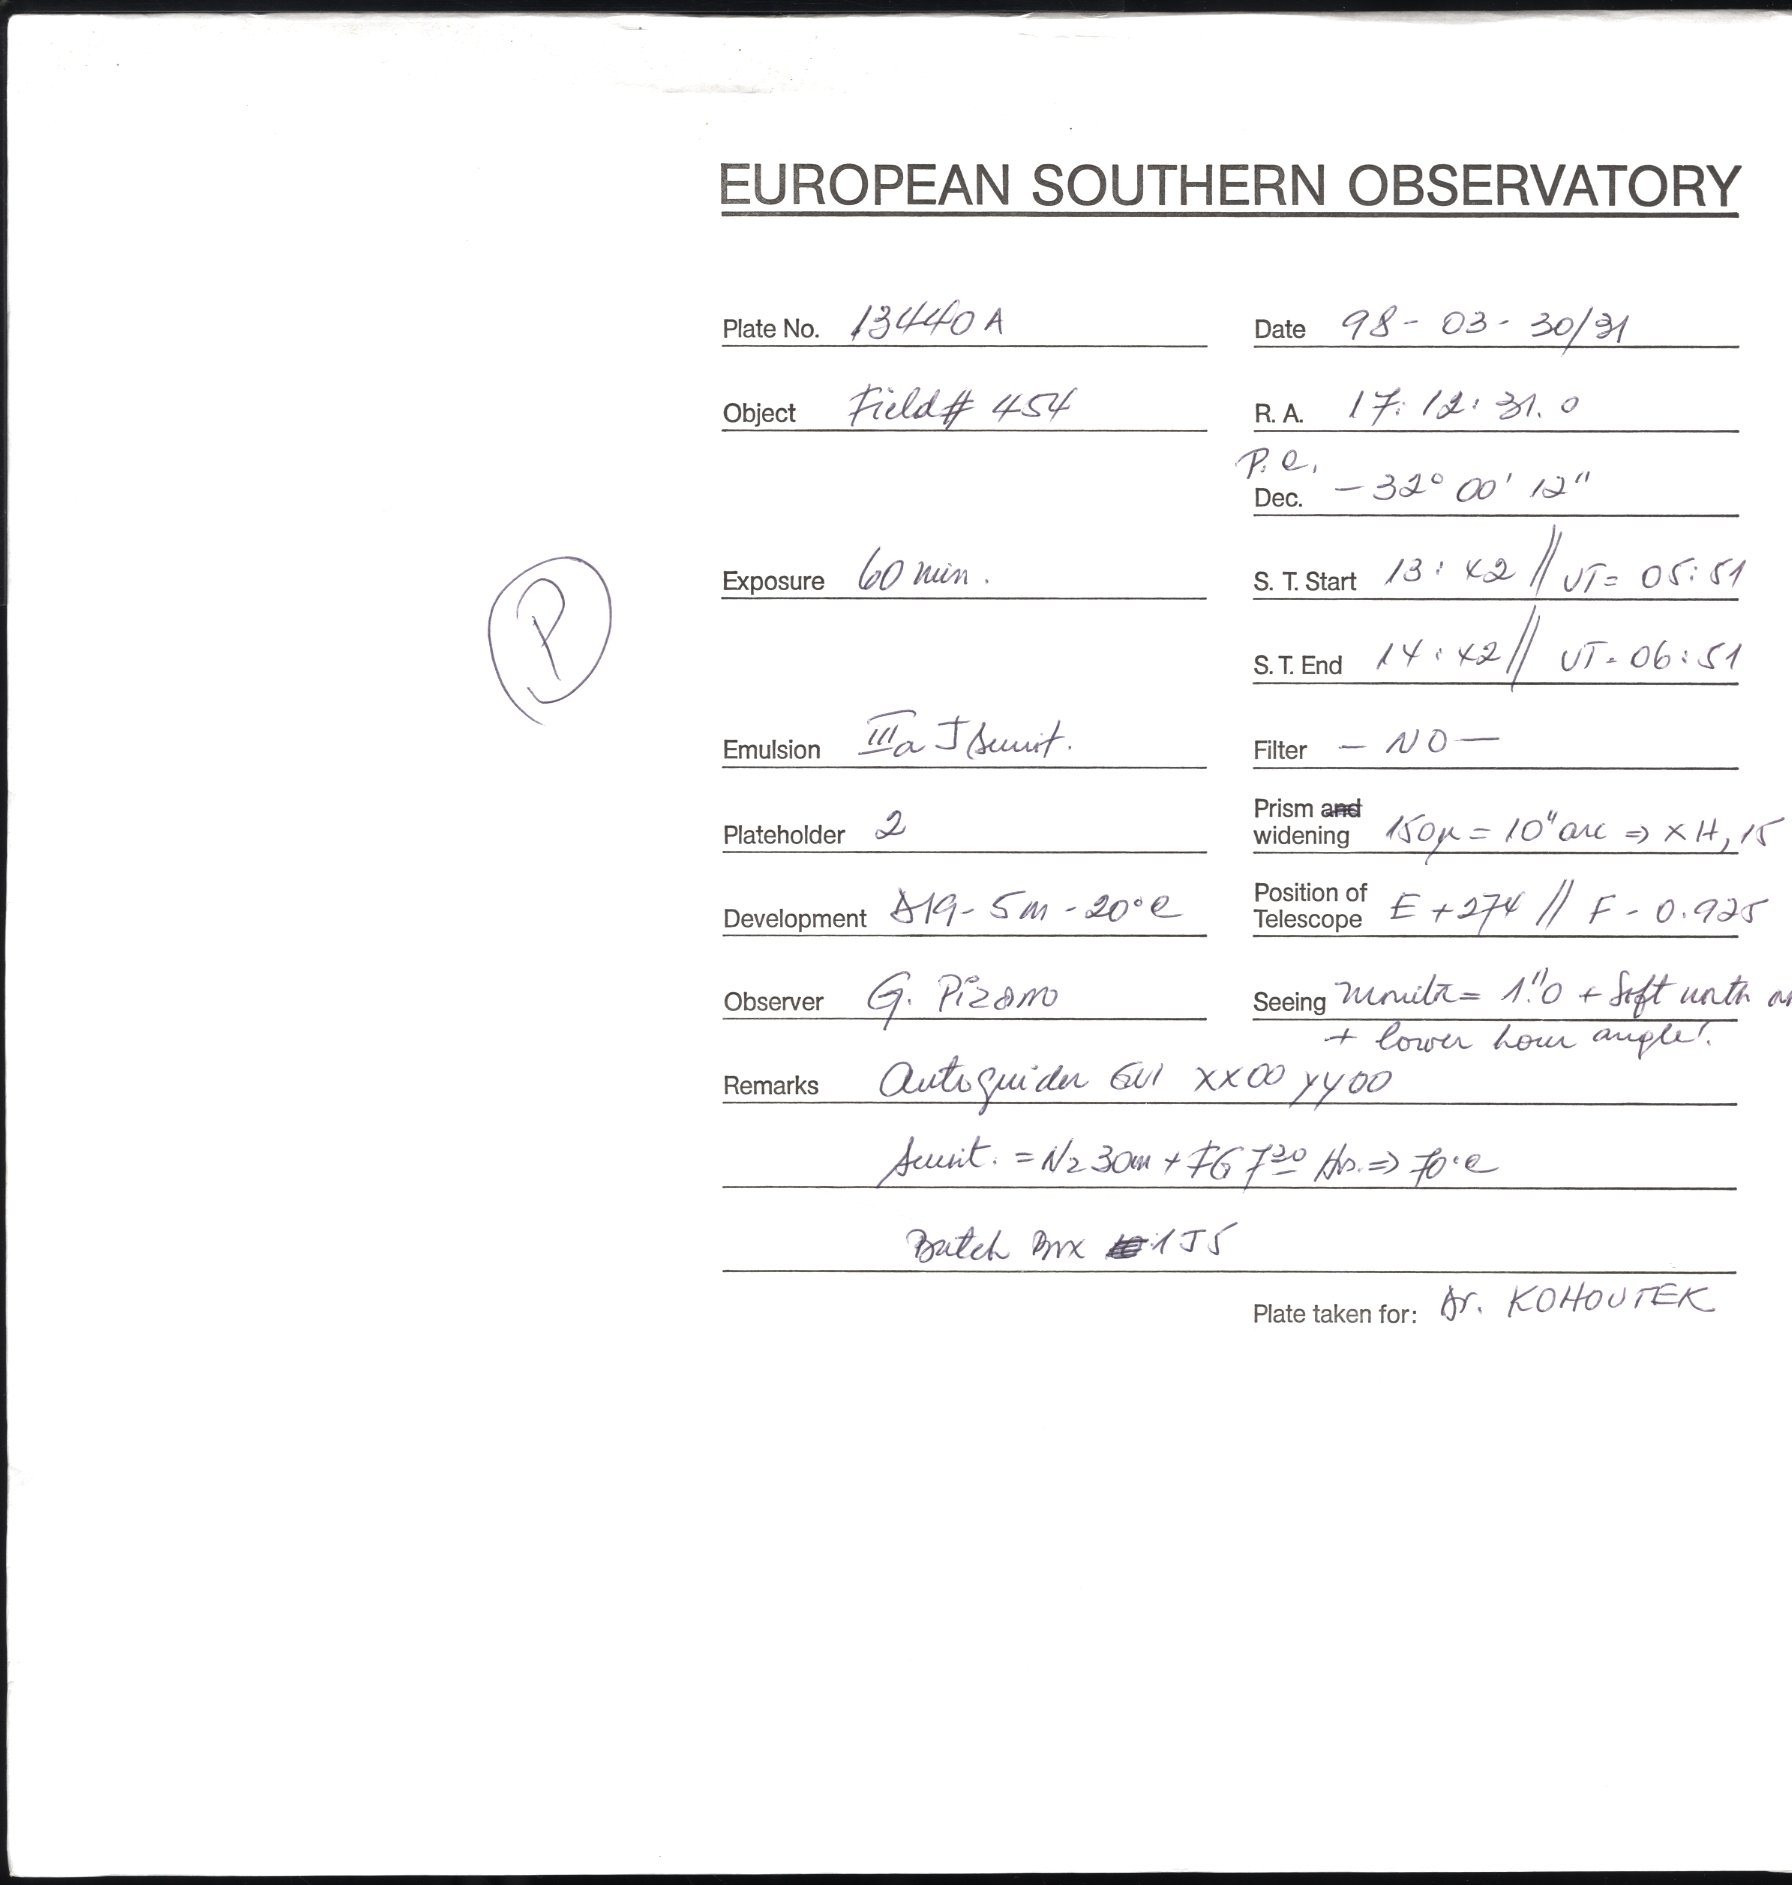 EUROPEAN SOUTHERN OBSERVATORY
Plate No. 13440 A
Date 98 - 03 - 30/31
Object Field # 454
R. A. 17: 12: 31. 0
P. e.
Dec. - 32° 00' 12"
Exposure 60 min.
S. T. Start 13: 42 // UT= 05: 51
P
S. T. End 14: 42 // UT= 06: 51
Emulsion IIIa J
Filter - NO -
Plateholder 2
Prism and widening 150µ = 10" arc ⇒ x H, 15
Development D19 - 5m - 20°C
Position of Telescope E +274 // F - 0.925
Observer G. Pizarro
Seeing = 1".0 + Soft north
+ lower hour angle!
Remarks Autoguider GV1 XX00 YY00
= N2 30m + FG 7 30 Hs. ⇒ 70°C
Batch Box 1J5
Plate taken for: Dr. KOHOUTEK